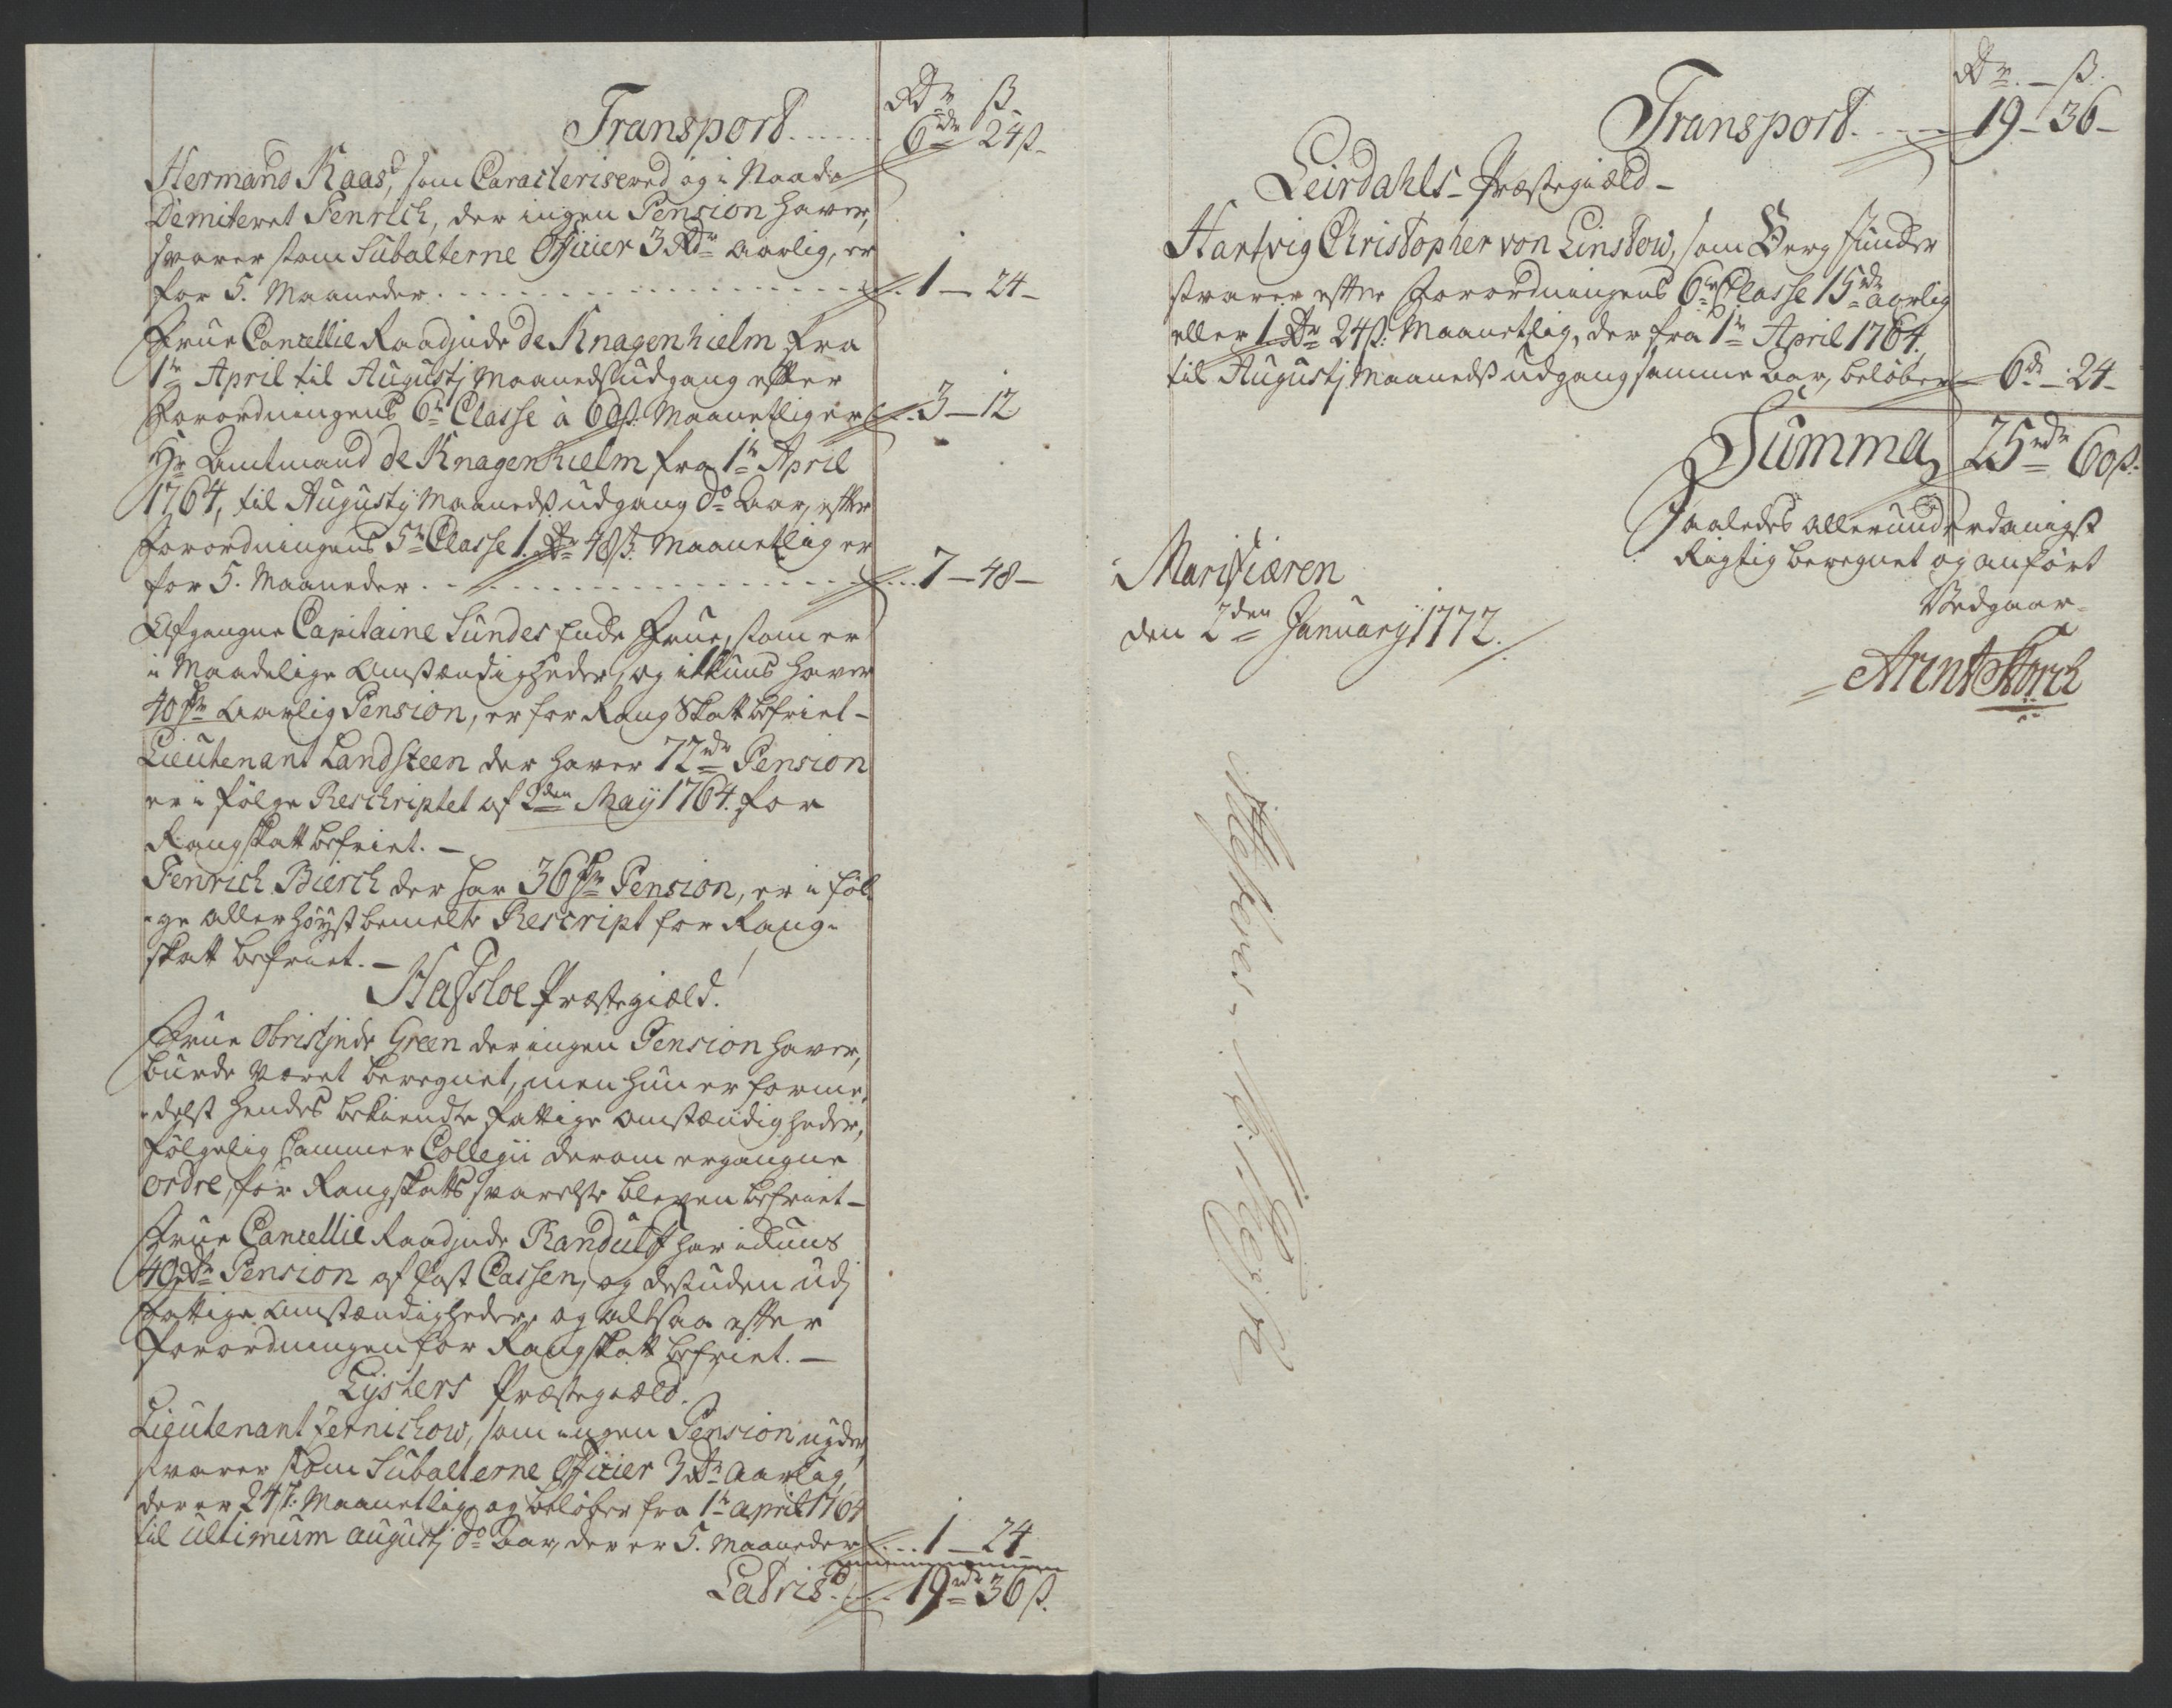 Rdr ß
Transport. . . . . . 6rdr 24ß
Hermand Kaas, som Caracterisered og i Naade
Demiteret Fenrich, der ingen Pension haver,
svarer som Subalterne Officier 3 Rdr aarlig, er
for 5. Maaneder . . . . . . 1 — 24 —
Frue Cancellie Raadjnde de Knagenhielm fra
1te April til Augustj Maanedsudgang efter
Forordningens 6te Classe à 60ß. Maanetlig er . . 3 — 12
Hr Amtmand de Knagenhielm fra 1te April
1764, til Augustij Maanedsudgang do Aar, efter
Forordningens 5te Classe 1. Rdr 48ß. Maanetlig er
for 5. Maaneder . . . . . . 7 — 48 —
Afgangne Capitaine Sundes Enke Frue, som er
i Maadelige Omstændigheder, og ikkuns haver
40 rdr Aarlig Pension, er for Rang Skatt befriet —
Lieutenant Landsteen der haver 72rdr Pension
er i følge Reschriptet af 2den Maij 1764. for
Rangskatt befriet. —
Fenrich Bierch der har 36 rdr Pension, er i föl
-ge allerhöyst bemelte Rescript for Rang-
skatt befriet. —
Hafsloe Præstegiæld.
Frue Obristjnde Green der ingen Pension haver,
burde været beregnet, men hun er forme-
-delst hendes bekiendte fattige omstændigheder,
følgelig Cammer Collegii derom ergangne
ordre, for Rangskatts svarelse bleven befriet —
Frue Cancellie Raadjnde Randulff har ickuns
40 rdr Pension af Post Cassen, og desuden udj
fattige Omstændigheder og altsaa efter
Forordningen for Rangskatt befriet. —
Lysters Præstegiæld.
Lieutenant Zernichow, som ingen Pension nyder,
svarer som Subalterne Officier 3 rdr Aarlig,
der er 24ß. Maanetlig og beløber fra 1te april 1764
til ultimum augustj do Aar, der er 5. Maaneder . . . 1 — 24 —
Latris . . . . 19rdr 36ß.
Rdr. — ß.
Transport. . . . . 19 — 36 —
Leirdahls Præstegiæld —
Hartvig Christopher von Linstow, som Berg
svarer efter Forordningens 6te Classe 15rdr aarlig
eller 1 Rdr 24ß: Maanetlig, der fra 1te April 1764.
til Augustj Maaneds udgang samme aar, beløber — 6rdr — 24 —
Summa 25rdr 60ß.
Saaledes allerunderdanigst
Rigtig beregnet og anført
Vedgaar
Marifiæren
den 2den January 1772.
Arent Storch